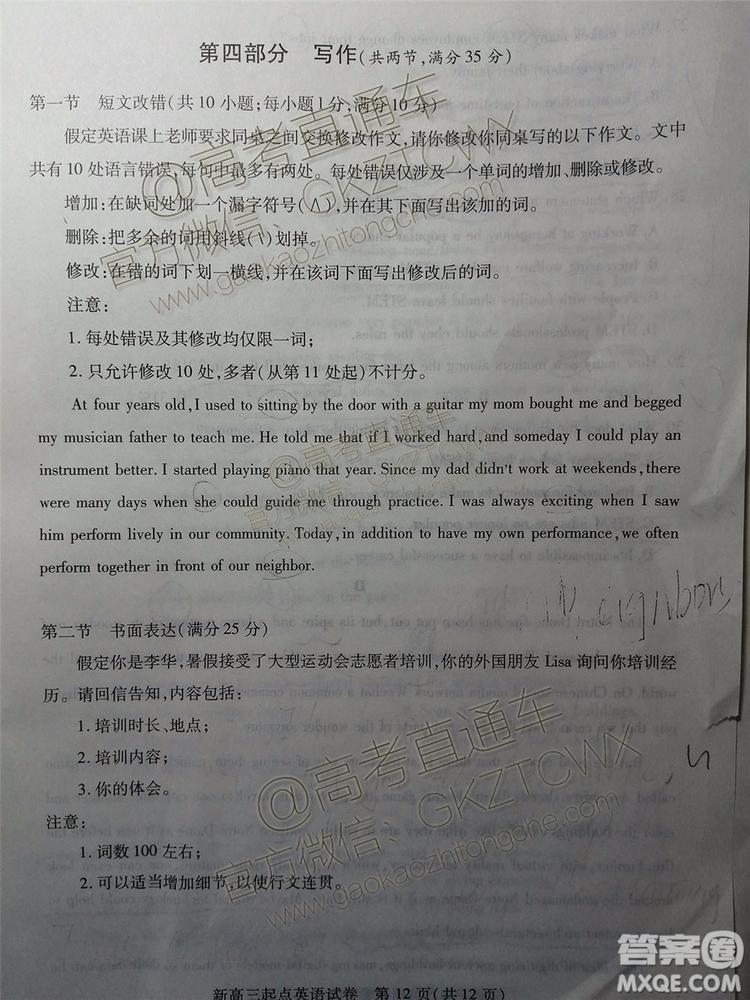 第四部分 写作(共两节,满分35分)
第一节 短文改错(共10小题;每小题1分,满分10分)
假定英语课上老师要求同桌之间交换修改作文,请你修改你同桌写的以下作文。文中
共有10处语言错误,每句中最多有两处。每处错误仅涉及一个单词的增加、删除或修改。
增加:在缺词处加一个漏字符号(∧),并在其下面写出该加的词。
删除:把多余的词用斜线(\)划掉。
修改:在错的词下划一横线,并在该词下面写出修改后的词。
注意:
1.每处错误及其修改均仅限一词;
2.只允许修改10处,多者(从第11处起)不计分。
At four years old, I used to sitting by the door with a guitar my mom bought me and begged
my musician father to teach me. He told me that if I worked hard, and someday I could play an
instrument better. I started playing piano that year. Since my dad didn't work at weekends, there
were many days when she could guide me through practice. I was always exciting when I saw
him perform lively in our community. Today, in addition to have my own performance, we often
perform together in front of our neighbor.
第二节 书面表达(满分25分)
假定你是李华,暑假接受了大型运动会志愿者培训,你的外国朋友Lisa询问你培训经
历。请回信告知,内容包括:
1.培训时长、地点;
2.培训内容;
3.你的体会。
注意:
1.词数100左右;
2.可以适当增加细节,以使行文连贯。
新高三起点英语试卷 第12页(共12页)
@高考直通车
官方微信:GKZTCWX
www.gaokaozhitongche.com
@高考直通车
官方微信:GKZTCWX
www.gaokaozhitongche.com
答案圈
MXQE.COM